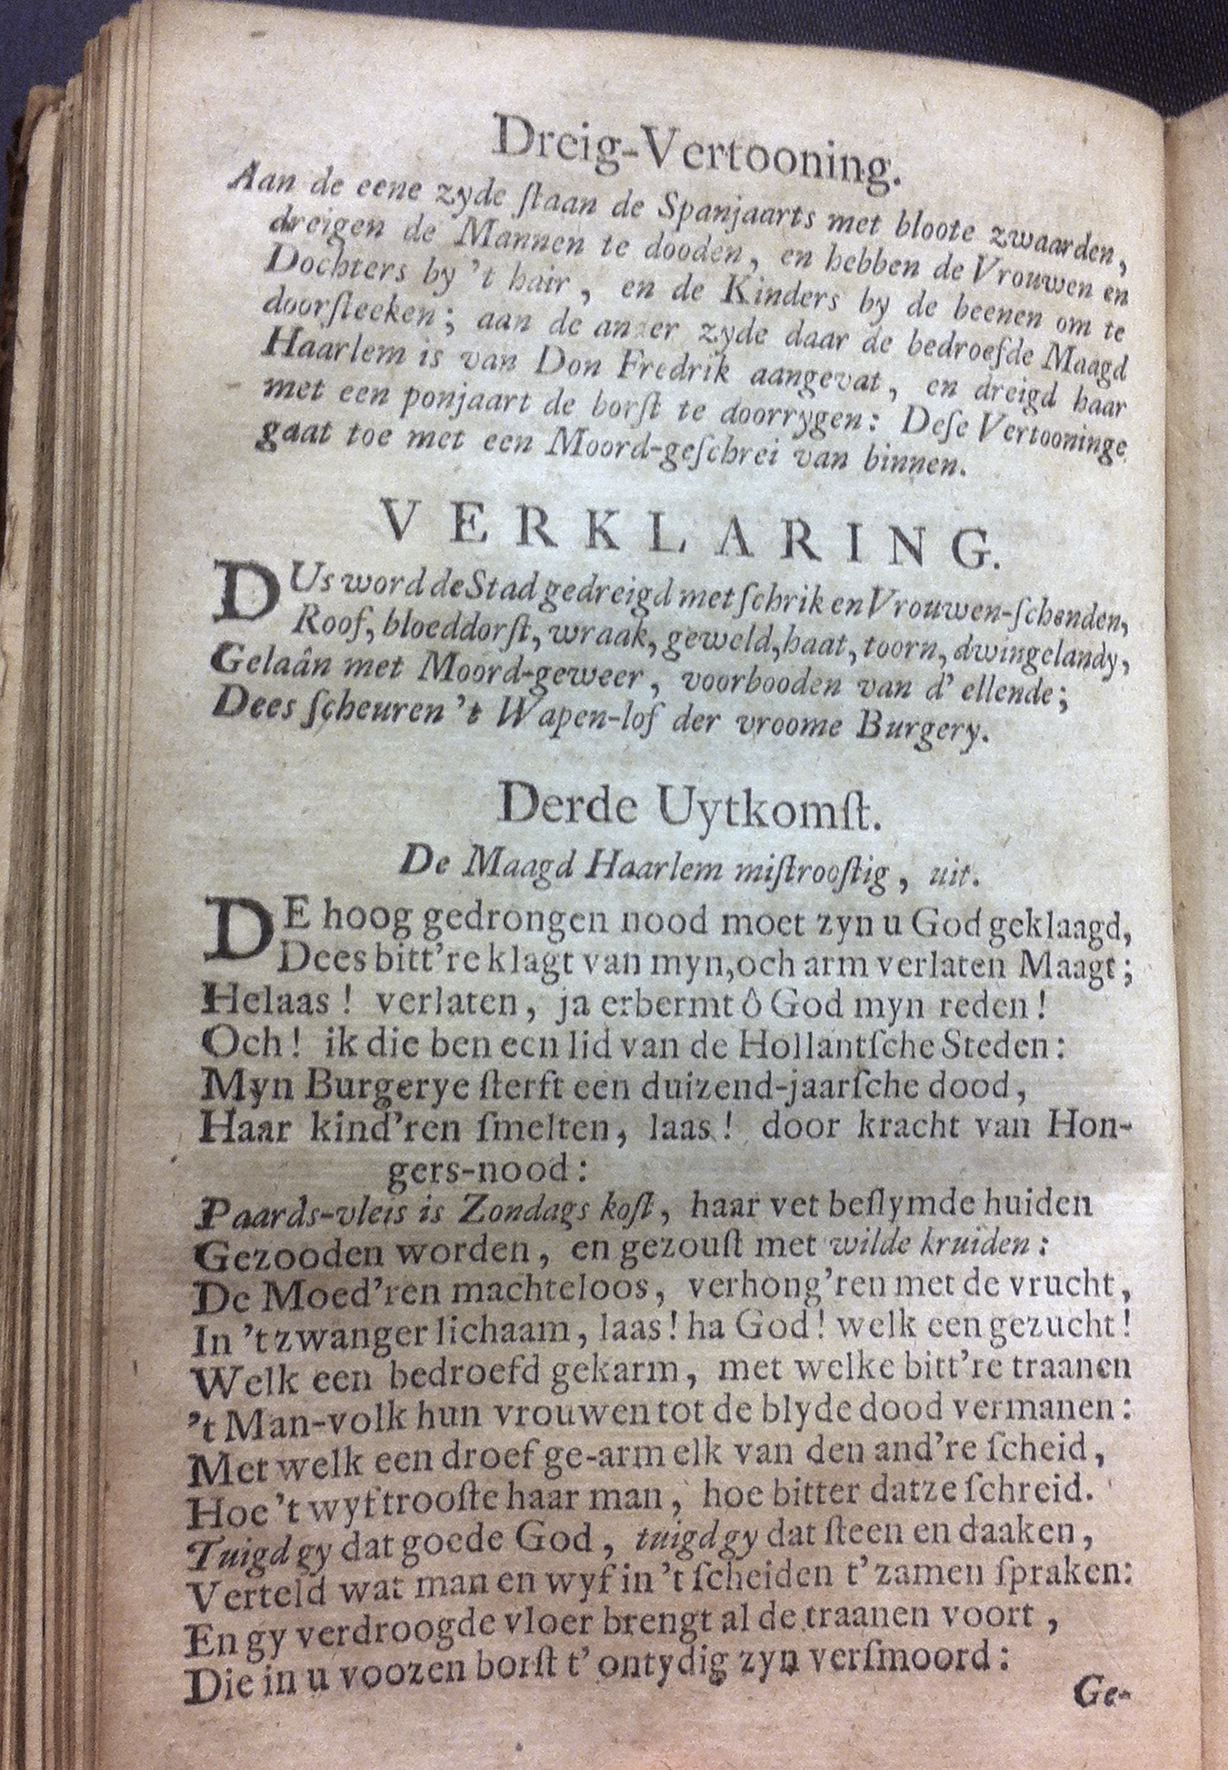 Dreig-Vertooning.
Aan de eene zyde ſtaan de Spanjaarts met bloote zwaarden,
dreigen de Mannen te dooden, en hebben de Vrouwen en
Dochters by 't hair, en de Kinders by de beenen om te
doorſteeken; aan de anzer zyde daar de bedroefde Maagd
Haarlem is van Don Fredrik aangevat, en dreigd haar
met een ponjaart de borſt te doorrygen: Deſe Vertooninge
gaat toe met een Moord-geſchrei van binnen.
VERKLARING.
DUs word de Stad gedreigd met ſchrik en Vrouwen-ſchenden,
Roof, bloeddorſt, wraak, geweld, haat, toorn, dwingelandy,
Gelaân met Moord-geweer, voorbooden van d' ellende;
Dees ſcheuren 't Wapen-lof der vroome Burgery.
Derde Uytkomſt.
De Maagd Haarlem miſtrooſtig, uit.
DE hoog gedrongen nood moet zyn u God geklaagd,
Dees bitt're klagt van myn, och arm verlaten Maagt;
Helaas! verlaten, ja erbermt ô God myn reden!
Och! ik die ben een lid van de Hollantſche Steden:
Myn Burgerye ſterft een duizend-jaarſche dood,
Haar kind'ren ſmelten, laas! door kracht van Hon-
gers-nood:
Paards-vleis is Zondags koſt, haar vet beſlymde huiden
Gezooden worden, en gezouſt met wilde kruiden:
De Moed'ren machteloos, verhong'ren met de vrucht,
In 't zwanger lichaam, laas! ha God! welk een gezucht!
Welk een bedroefd gekarm, met welke bitt're traanen
't Man-volk hun vrouwen tot de blyde dood vermanen:
Met welk een droef ge-arm elk van den and're ſcheid,
Hoe 't wyf trooſte haar man, hoe bitter datze ſchreid.
Tuigd gy dat goede God, tuigd gy dat ſteen en daaken,
Verteld wat man en wyf in 't ſcheiden t' zamen ſpraken:
En gy verdroogde vloer brengt al de traanen voort,
Die in u voozen borſt t' ontydig zyn verſmoord:
Ge-